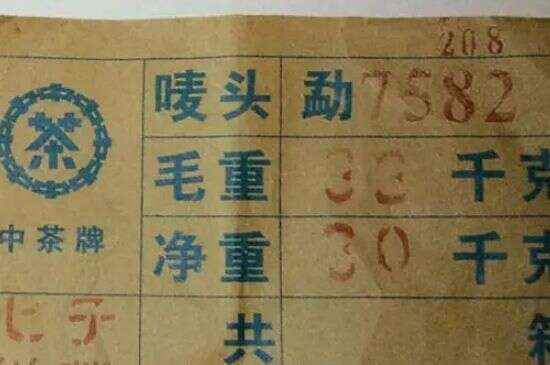 208
唛头 勐7582
茶
毛重 33 千克
中茶牌
净重 30 千克
七子
共